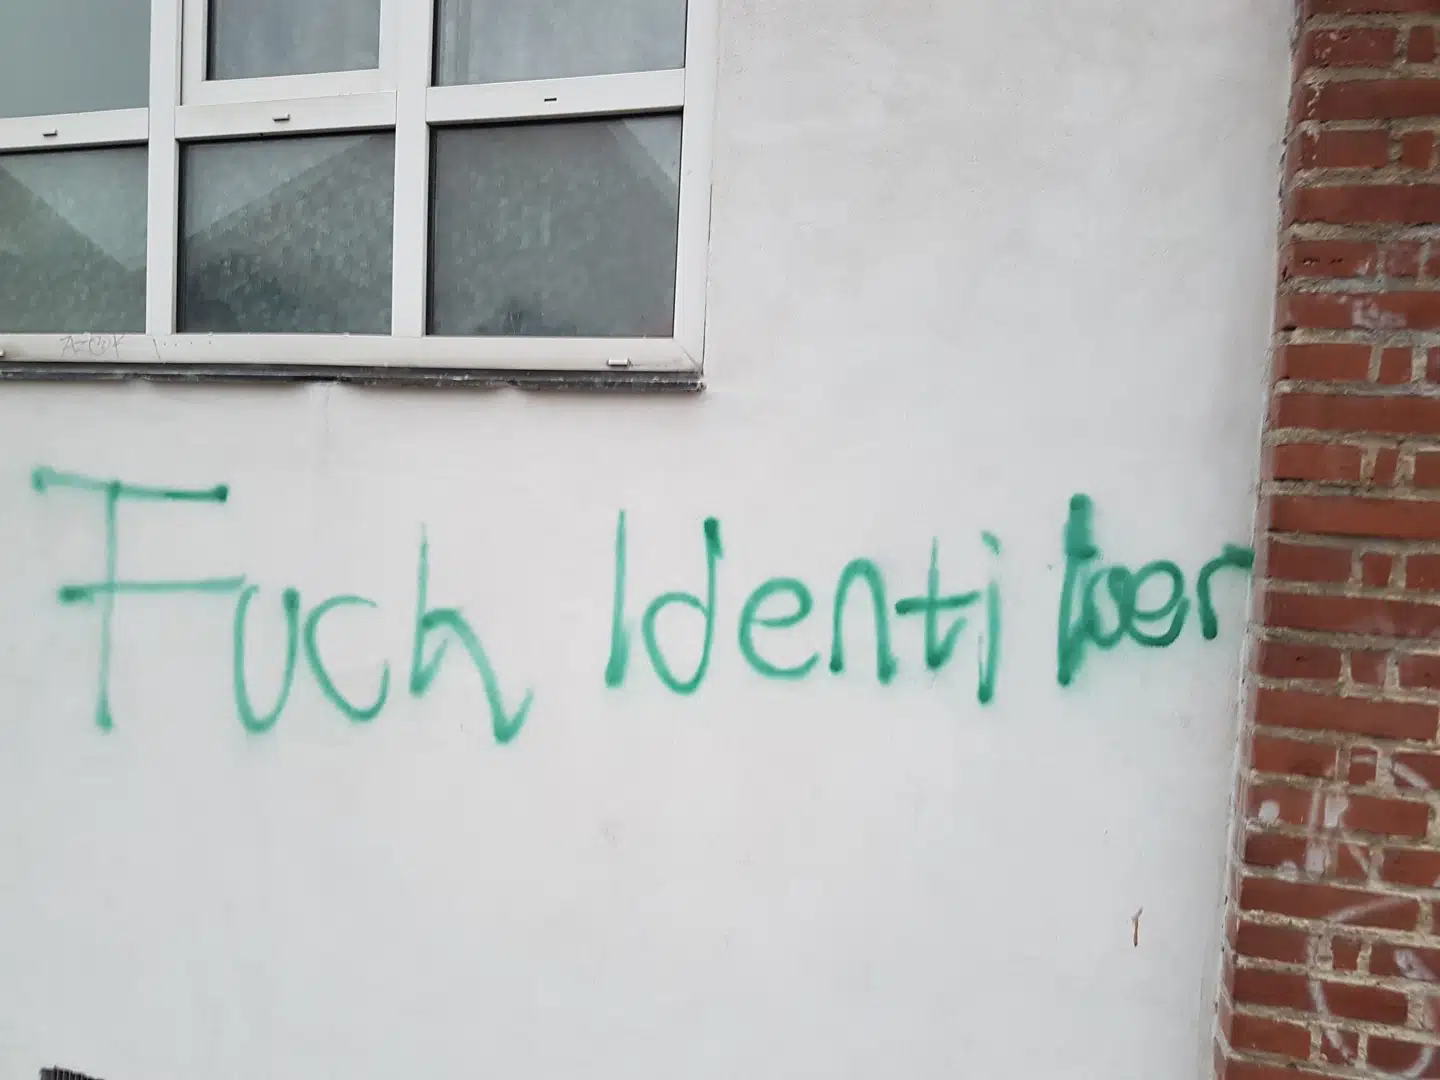 Fuck Identitær